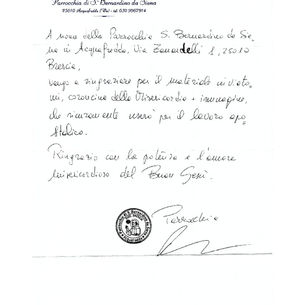 Parrocchia di S. Bernardino da Siena
A nome della Parrocchia S. Bernardino da Sie
na in Acquafredda, Via Bonandelli 1, 25010
Brescia,
vengo a ringraziare per il materiale inviato
mi, coroncine della Misericordia + immagine,
che sicuramente userò per il lavoro apo
stolico.
Ringrazio con la potenza e l'amore
misericordioso del Buon Gesù.
Parrocchia